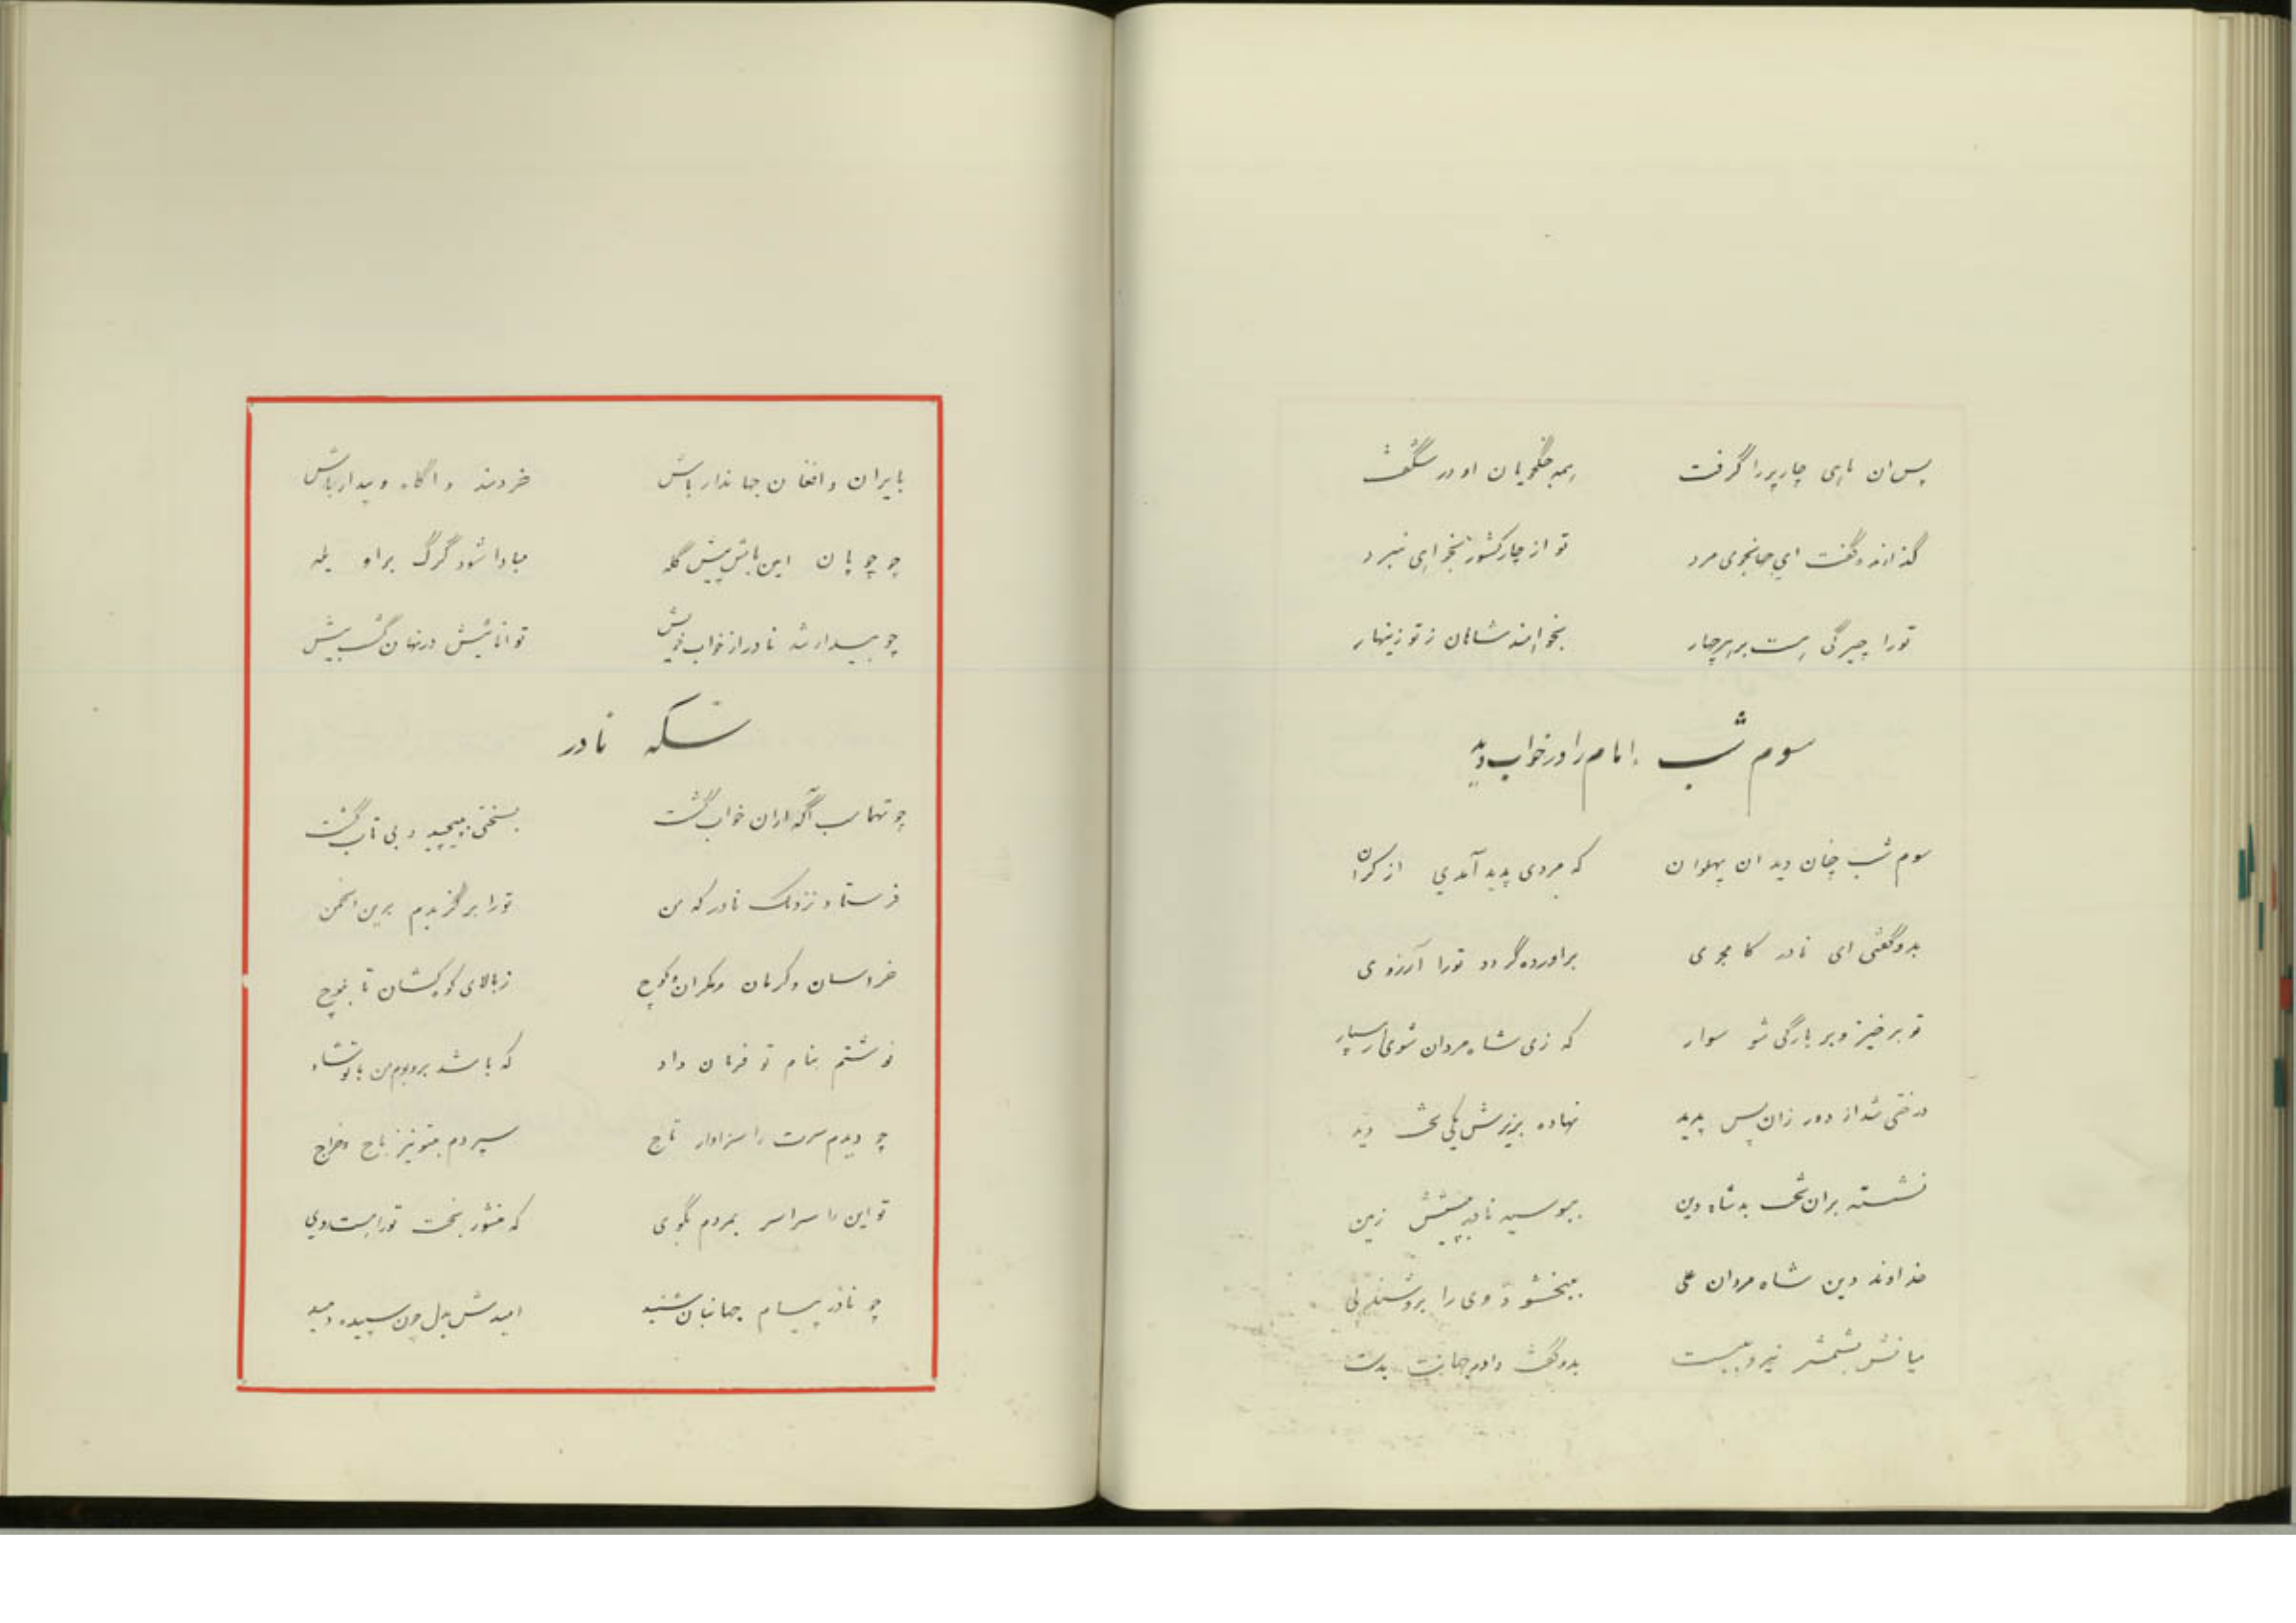 پس ان ماهی چارپر را گرفت همه جنگجویان او در شگفت
گذراند و گفت ای جهانجوی مرد تو از چار کشور بخواهی نبرد
تورا چیرگی هست بر هرچهار بخواهند شاهان ز تو زینهار
سوم شب امام را در خواب دید
سوم شب چنان دید ان پهلوان که مردی پدید آمدی از کران
بدو گفتی ای نادر کامجوی براورده گردد تورا آرزوی
تو برخیز و بر بارگی شو سوار که زی شاه مردان شوی رهسپار
درختی شد از دور زان پس پدید نهاده بزیرش یکی تخت دید
نشسته بران تخت بد شاه دین ببوسید نادر به پیشش زمین
خداوند دین شاه مردان علی ببخشود وی را بروشندلی
میانش بشمشیر نیرو ببست بدو گفت دادم جهانت بدست
بایران و افغان جهاندار باش خردمند و اگاه و بیدار باش
چو چوپان امین باش پیش گله مبادا شود گرگ براو یله
چو بیدار شد نادر از خواب خویش توانائیش در نهان گشت بیش
سکه نادر
چو تهماسب آگه ازان خواب گشت بسختی بپیچید و بی تاب گشت
فرستاد نزدیک نادر که من تورا برگزیدم برین انجمن
خراسان و کرمان و مکران و کوچ ز بالای کوهستان تا بلوچ
نوشتم بنام تو فرمان داد که باشد بروبوم من با تو شاد
چو دیدم سرت را سزاوار تاج سپردم بتو نیز باج و خراج
تو این را سراسر بمردم بگوی که منشور بخت تورا هست روی
چو نادر پیام جهانبان شنید امیدش بدل چون سپیده دمید